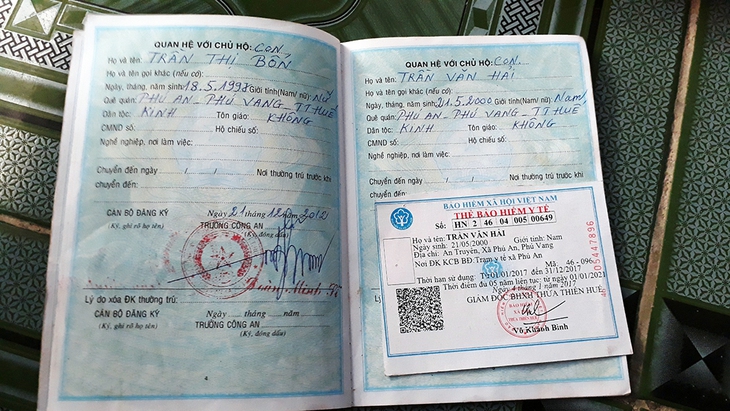 QUAN HỆ VỚI CHỦ HỘ: CON,
Họ và tên: TRẦN THỊ BÔN
Họ và tên gọi khác (nếu có):
Ngày, tháng, năm sinh: 18.5.1998 Giới tính(Nam/ nữ): Nữ
Quê quán: PHÚ AN - PHÚ VANG - TT HUẾ
Dân tộc: KINH Tôn giáo: KHÔNG
CMND số: Hộ chiếu số:
Nghề nghiệp, nơi làm việc:
Chuyển đến ngày / / Nơi thường trú trước khi
chuyển đến:
Ngày 21 tháng 12 năm 2012
CÁN BỘ ĐĂNG KÝ TRƯỞNG CÔNG AN
(Ký, ghi rõ họ tên) (Ký, đóng dấu)
Lý do xóa ĐK thường trú:
Ngày tháng năm
CÁN BỘ ĐĂNG KÝ TRƯỞNG CÔNG AN
(Ký, ghi rõ họ tên) (Ký, đóng dấu)
4
QUAN HỆ VỚI CHỦ HỘ: CON,
Họ và tên: TRẦN VĂN HẢI
Họ và tên gọi khác (nếu có):
Ngày, tháng, năm sinh: 21.5.2000 Giới tính(Nam/ nữ): Nam,
Quê quán: PHÚ AN - PHÚ VANG - TT HUẾ
Dân tộc: KINH Tôn giáo: KHÔNG
CMND số: Hộ chiếu số:
Nghề nghiệp, nơi làm việc:
Chuyển đến ngày / / Nơi thường trú trước khi
chuyển đến:
BẢO HIỂM XÃ HỘI VIỆT NAM
THẺ BẢO HIỂM Y TẾ
Số: HN 2 46 04 005 00649
Họ và tên: TRẦN VĂN HẢI
Ngày sinh: 21/05/2000 Giới tính: Nam
Địa chỉ: An Truyền, Xã Phú An, Phú Vang
Nơi ĐK KCB BĐ: Trạm y tế xã Phú An
Mã: 46 - 096
Thời hạn sử dụng: Từ 01/01/2017 đến 31/12/2017
Thời điểm đủ 05 năm liên tục: từ ngày 01/01/2021
Ngày 4 tháng 1 năm 2017
GIÁM ĐỐC BHXH THỪA THIÊN HUẾ
Võ Khánh Bình
46 05447896